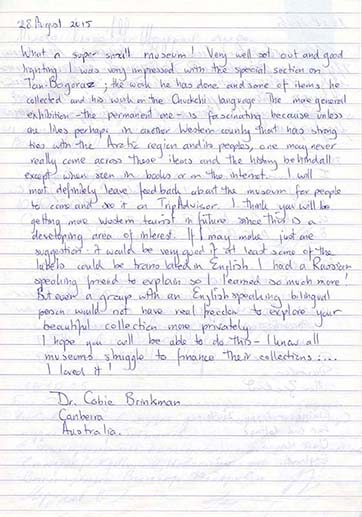 28 August 2015
What a super small museum! Very well set out and good
lighting. I was very impressed with the special section on
Tan-Bogoraz; the work he has done and some of items he
collected and his work on the Chukchi language. The more general
exhibition - the permanent one - is fascinating because unless
one lives perhaps in another Western country that has strong
ties with the Arctic region and its peoples, one may never
really come across these items and the history behind all
except when seen in books or on the internet. I will
most definitely leave feedback about the museum for people
to come and see it on TripAdvisor. I think you will be
getting more Western tourist in future since this is a
developing area of interest. If I may make just one
suggestion: it would be very good if at least some of the
labels could be translated in English. I had a Russian
speaking friend to explain so I learned so much more!
But even a group with an English speaking bilingual
person would not have real freedom to explore your
beautiful collection more privately.
I hope you will be able to do this - I know all
museums struggle to finance their collections....
I loved it!
Dr. Cobie Brinkman
Canberra
Australia.